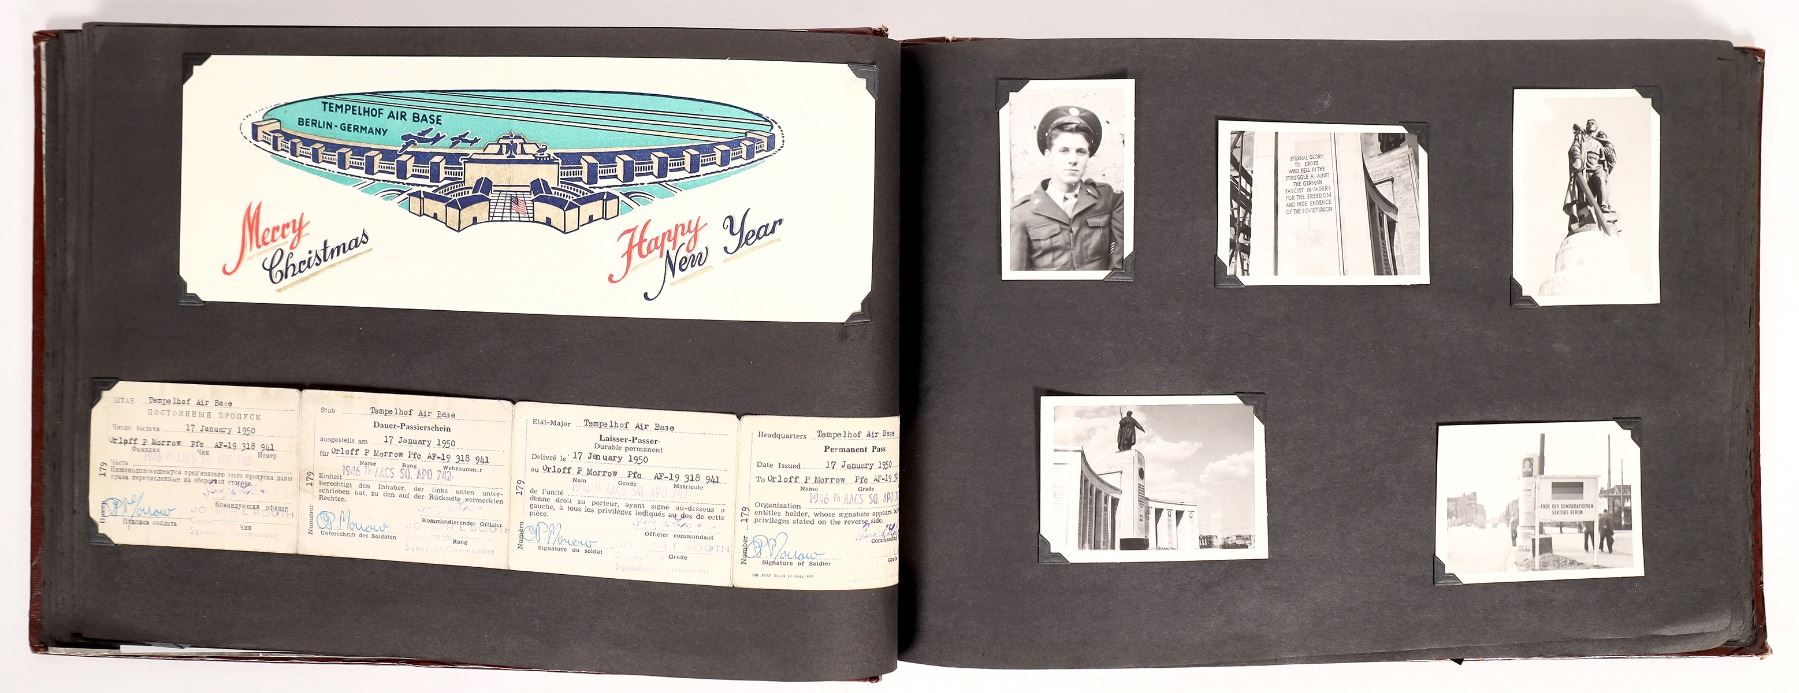 TEMPELHOF AIR BASE
BERLIN - GERMANY
Merry
Christmas
Happy
New Year
ШТАБ Tempelhof Air Base
ПОСТОЯННЫЙ ПРОПУСК
Число выдачи 17 January 1950
Orloff P Morrow Pfc AF-19 318 941
Фамилия Чин Номер
Часть 1946 th AACS SQ. APO 742
Нижеподписавшемуся предъявителю этого пропуска даны
права перечисленные на оборотной стороне.
179
Командующий офицер
OP Morrow
Подпись солдата Чин
Squadron Commander
Stab Tempelhof Air Base
Dauer-Passierschein
ausgestellt am 17 January 1950
für Orloff P Morrow Pfc AF-19 318 941
Name Rang Wehrnummer
Einheit 1946 th AACS SQ. APO 742
berechtigt den Inhaber, der links unten unter-
schrieben hat, zu den auf der Rückseite vermerkten
Rechten.
Nummer 179
Kommandierender Offizier
OP Morrow
Unterschrift des Soldaten Rang
Squadron Commander
Etat-Major Tempelhof Air Base
Laisser-Passer
Durable permanent
Délivré le 17 January 1950
au Orloff P Morrow Pfc AF-19 318 941
Nom Grade Matricule
de l'unité 1946 th AACS SQ. APO
donne droit au porteur, ayant signé au-dessous a
gauche, à tous les privilèges indiqués au dos de cette
pièce.
Numéro 179
Officier commandant
OP Morrow
BOOTH
Signature du soldat Grade
Squadron Commander
Headquarters Tempelhof Air Base
Permanent Pass
Date Issued 17 January 1950
To Orloff P Morrow Pfc AF-19
Name Grade
1946 th AACS SQ. APO
Organization
entitles holder, whose signature appears
privileges stated on the reverse side.
Number 179
OP Morrow
Signature of Soldier
ETERNAL GLORY
TO HEROES
WHO FELL IN THE
STRUGGLE AGAINST
THE GERMAN
FASCIST INVADERS
FOR THE FREEDOM
AND INDEPENDENCE
OF THE SOVIET UNION
ENDE DES DEMOKRATISCHEN
SEKTORS BERLIN